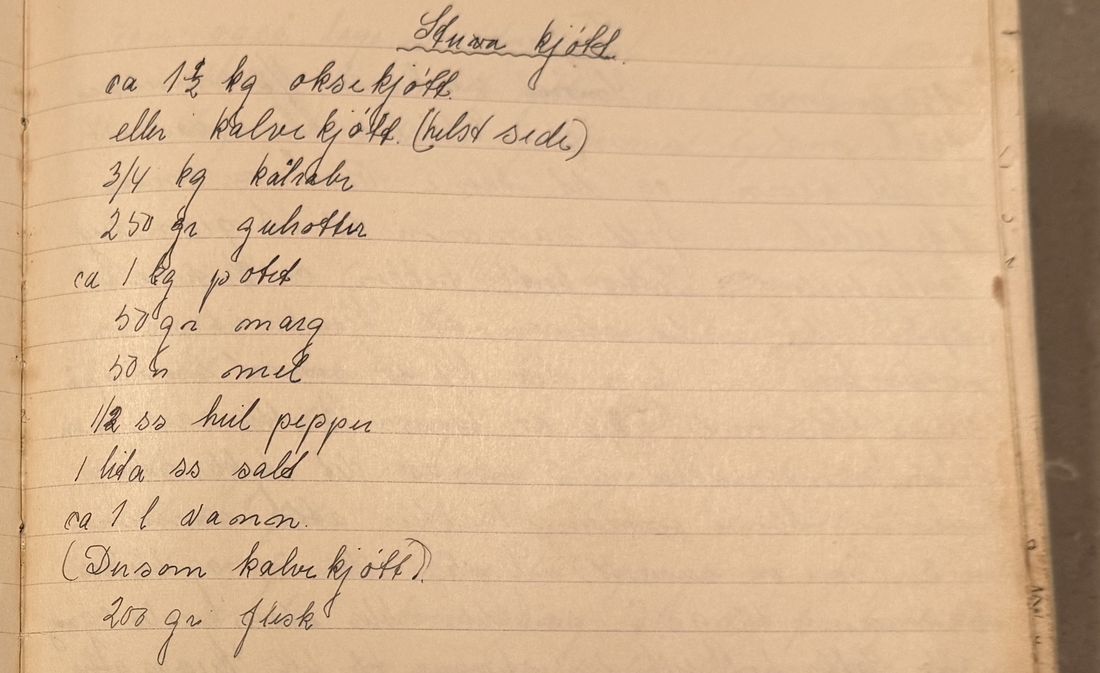 Stuva kjött.
ca 1½ kg oksekjött.
eller kalvekjött. (helst side)
3/4 kg kålrabi
250 gr gulrotter
ca 1 kg potet
50 gr marg
50 " mel
1/2 ss heil pepper
1 lita ss salt
ca 1 l vann.
(Dersom kalvekjött).
200 gr flesk